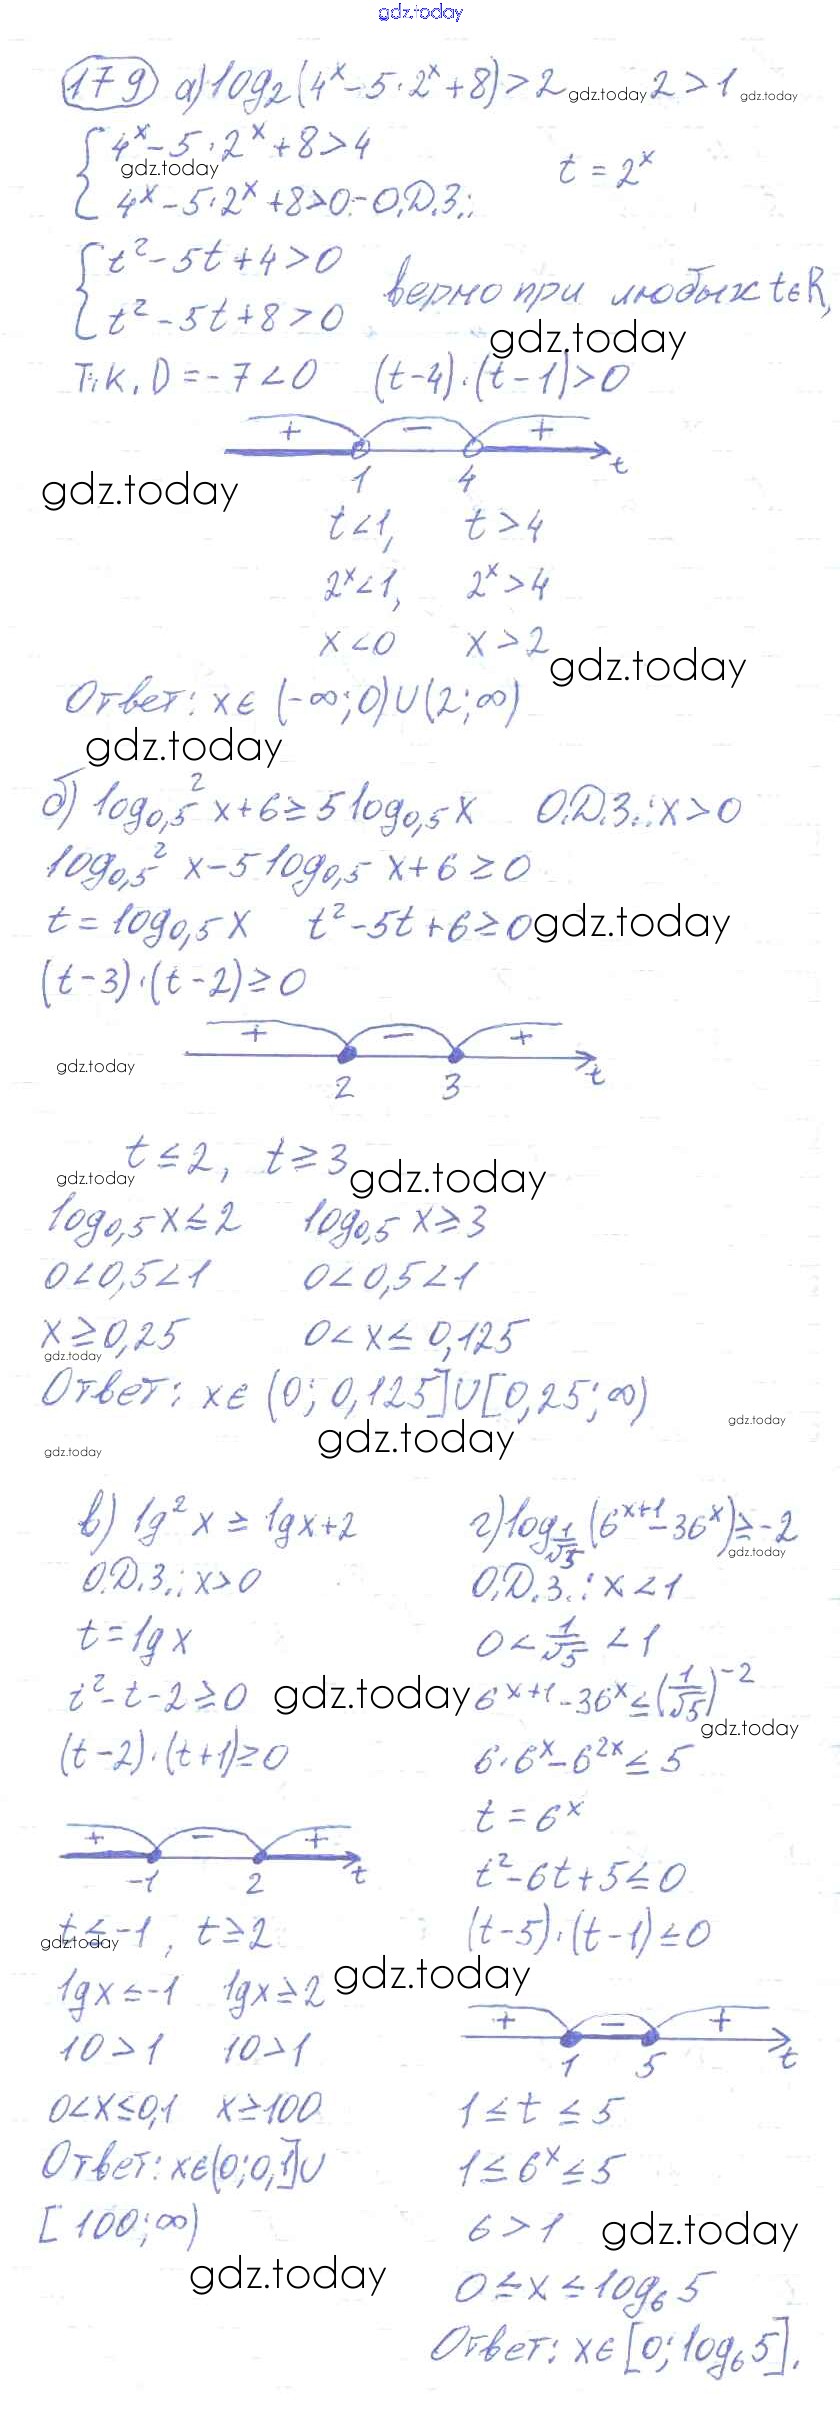 gdz.today
179 а) log₂(4ˣ-5·2ˣ+8)>2 gdz.today 2>1 gdz.today
4ˣ-5·2ˣ+8>4
gdz.today t=2ˣ
4ˣ-5·2ˣ+8>0-О.Д.З.:
t²-5t+4>0
верно при любых t∈R,
t²-5t+8>0
gdz.today
т.к. D=-7<0 (t-4)·(t-1)>0
+ - +
t
gdz.today 1 4
t<1, t>4
2ˣ<1, 2ˣ>4
x<0 x>2 gdz.today
Ответ: x∈(-∞;0)∪(2;∞)
gdz.today
б) log₀,₅² x+6≥5log₀,₅x О.Д.З.: x>0
log₀,₅² x-5log₀,₅ x+6≥0
t=log₀,₅x t²-5t+6≥0 gdz.today
(t-3)·(t-2)≥0
+ - +
gdz.today 2 3 t
t≤2, t≥3
gdz.today gdz.today
log₀,₅x≤2 log₀,₅ x≥3
0<0,5<1 0<0,5<1
x≥0,25 0<x≤0,125
gdz.today
Ответ: x∈(0; 0,125]∪[0,25;∞)
gdz.today gdz.today gdz.today
в) lg²x≥lgx+2
О.Д.З.: x>0
t=lgx
t²-t-2≥0 gdz.today
(t-2)·(t+1)≥0
+ - +
-1 2 t
t≤-1, t≥2
gdz.today
lgx≤-1 lgx≥2 gdz.today
10>1 10>1
0<x≤0,1 x≥100
Ответ: x∈(0;0,1]∪
[100;∞)
gdz.today
г) log_(1/√5)(6ˣ⁺¹-36ˣ)≥-2
gdz.today
О.Д.З.: x<1
0<1/√5<1
6ˣ⁺¹-36ˣ≤(1/√5)⁻²
gdz.today
6·6ˣ-6²ˣ≤5
t=6ˣ
t²-6t+5≤0
(t-5)·(t-1)≤0
+ - +
1 5 t
1≤t≤5
1≤6ˣ≤5
6>1 gdz.today
0≤x≤log₆5
Ответ: x∈[0;log₆5].